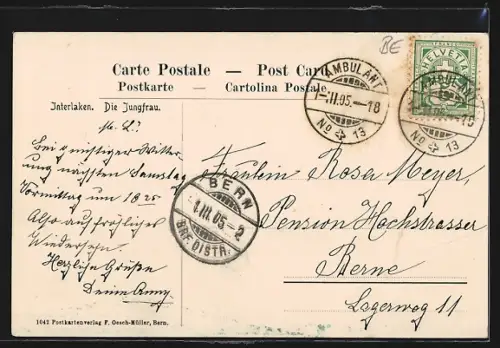 BE
Carte Postale — Post Card
Postkarte — Cartolina Postale
HELVETIA
AMBULANT
1-.II.05.-18
No 13
AMBULAN
-18
No 13
Interlaken. Die Jungfrau.
M. L.!
Bei günstiger Witter-
ung nächsten Samstag
Vormittag um 10 25
Also auf fröhliches
Wiedersehn.
Herzliche Grüße
Deine Anny.
Fräulein Rosa Meyer,
Pension Hochstrasser
Berne
Lagerweg 11
BERN
1.III.05.-2
BRF. DISTR.
1042 Postkartenverlag F. Oesch-Müller, Bern.